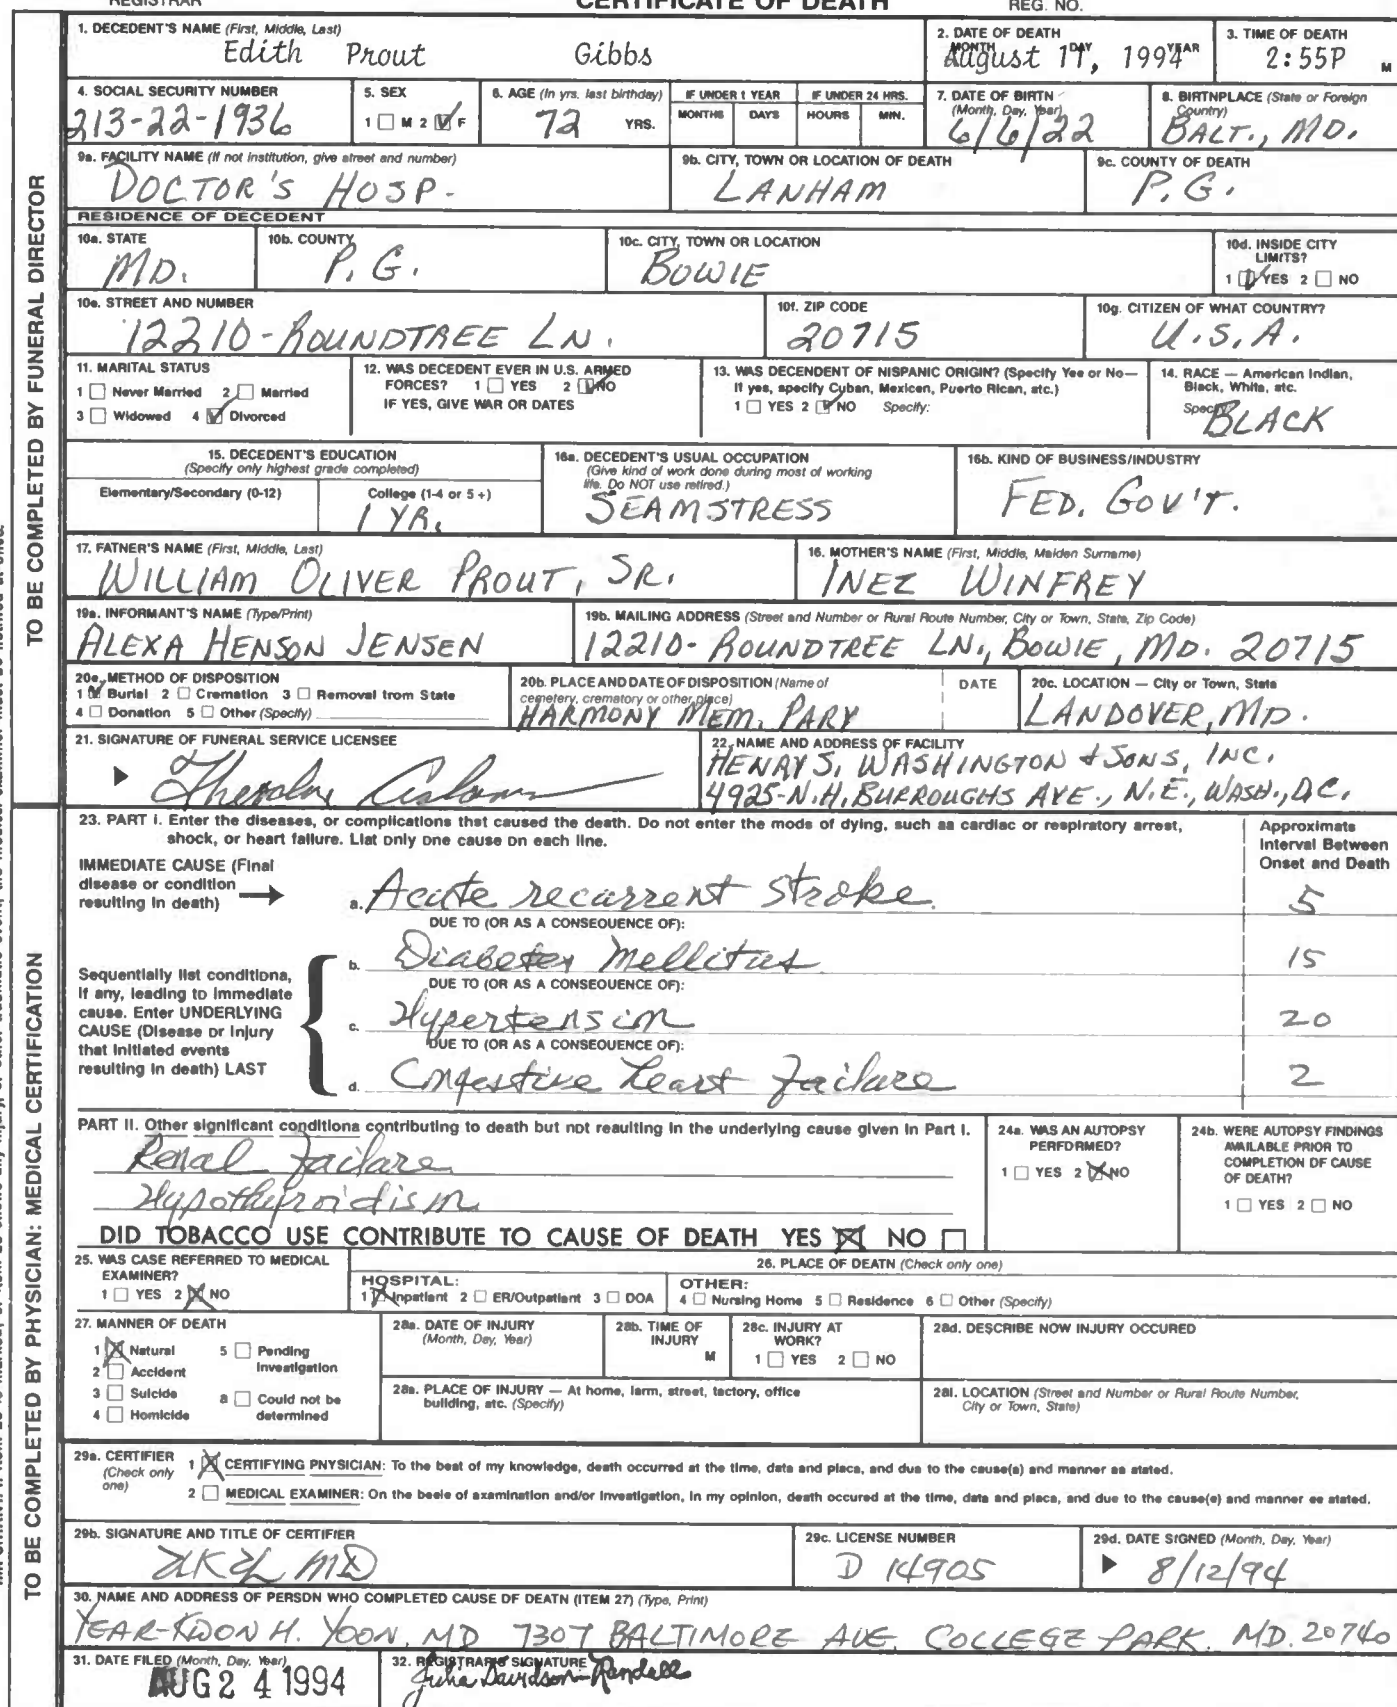 REGISTRAR CERTIFICATE OF DEATH REG. NO.
1. DECEDENT'S NAME (First, Middle, Last)
Edith Prout Gibbs
2. DATE OF DEATH
MONTH DAY YEAR
August 17, 1994
3. TIME OF DEATH
2:55P M
4. SOCIAL SECURITY NUMBER
213-22-1936
5. SEX
1 M 2 F
6. AGE (In yrs. last birthday)
72 YRS.
IF UNDER 1 YEAR
MONTHS DAYS
IF UNDER 24 HRS.
HOURS MIN.
7. DATE OF BIRTH
(Month, Day, Year)
6/6/22
8. BIRTNPLACE (State or Foreign
Country)
BALT., MD.
9a. FACILITY NAME (If not institution, give street and number)
DOCTOR'S HOSP.
9b. CITY, TOWN OR LOCATION OF DEATH
LANHAM
9c. COUNTY OF DEATH
P.G.
RESIDENCE OF DECEDENT
10a. STATE
MD.
10b. COUNTY
P.G.
10c. CITY, TOWN OR LOCATION
BOWIE
10d. INSIDE CITY
LIMITS?
1 YES 2 NO
10e. STREET AND NUMBER
12210-ROUNDTREE LN.
10f. ZIP CODE
20715
10g. CITIZEN OF WHAT COUNTRY?
U.S.A.
11. MARITAL STATUS
1 Never Married 2 Married
3 Widowed 4 Divorced
12. WAS DECEDENT EVER IN U.S. ARMED
FORCES? 1 YES 2 NO
IF YES, GIVE WAR OR DATES
13. WAS DECENDENT OF NISPANIC ORIGIN? (Specify Yee or No—
If yes, specify Cuban, Mexicen, Puerto Rican, atc.)
1 YES 2 NO Specify:
14. RACE — American Indian,
Black, White, atc.
Specify
BLACK
15. DECEDENT'S EDUCATION
(Specify only highest grade completed)
Elementary/Secondary (0-12)
College (1-4 or 5 +)
1 YR.
16a. DECEDENT'S USUAL OCCUPATION
(Give kind of work done during most of working
life. Do NOT use retired.)
SEAMSTRESS
16b. KIND OF BUSINESS/INDUSTRY
FED. GOV'T.
17. FATNER'S NAME (First, Middle, Last)
WILLIAM OLIVER PROUT, SR.
16. MOTHER'S NAME (First, Middle, Maiden Surname)
INEZ WINFREY
19a. INFORMANT'S NAME (Type/Print)
ALEXA HENSON JENSEN
19b. MAILING ADDRESS (Street and Number or Rural Route Number, City or Town, State, Zip Code)
12210- ROUNDTREE LN., BOWIE, MD. 20715
20a. METHOD OF DISPOSITION
1 Burial 2 Cremation 3 Removal trom State
4 Donation 5 Other (Specify)
20b. PLACE AND DATE OF DISPOSITION (Name of
cemetery, crematory or other place)
DATE
HARMONY MEM. PARK
20c. LOCATION — City or Town, State
LANDOVER, MD.
21. SIGNATURE OF FUNERAL SERVICE LICENSEE
22. NAME AND ADDRESS OF FACILITY
HENRY S. WASHINGTON & SONS, INC.
4925-N.H. BURROUGHS AVE., N.E., WASH., D.C.
TO BE COMPLETED BY FUNERAL DIRECTOR
23. PART I. Enter the diseases, or complications that caused the death. Do not enter the mods of dying, such aa cardiac or respiratory arrest,
shock, or heart failure. Liat only one cause on each line.
Approximats
Interval Between
Onset and Death
IMMEDIATE CAUSE (Final
disease or condition
resulting in death)
a. Acute recurrent stroke 5
DUE TO (OR AS A CONSEQUENCE OF):
b. Diabetes Mellitus 15
DUE TO (OR AS A CONSEQUENCE OF):
Sequentially list conditiona,
if any, leading to immediate
cause. Enter UNDERLYING
CAUSE (Disease or injury
that initiated events
resulting in death) LAST
c. Hypertension 20
DUE TO (OR AS A CONSEQUENCE OF):
d. Congestive heart failure 2
PART II. Other significant conditiona contributing to death but not reaulting in the underlying cause given in Part I.
Renal failure
Hypothyroidism
24a. WAS AN AUTOPSY
PERFORMED?
1 YES 2 NO
24b. WERE AUTOPSY FINDINGS
AVAILABLE PRIOR TO
COMPLETION OF CAUSE
OF DEATH?
1 YES 2 NO
DID TOBACCO USE CONTRIBUTE TO CAUSE OF DEATH YES NO
25. WAS CASE REFERRED TO MEDICAL
EXAMINER?
1 YES 2 NO
26. PLACE OF DEATH (Check only one)
HOSPITAL:
1 Inpatient 2 ER/Outpatient 3 DOA
OTHER:
4 Nursing Home 5 Residence 6 Other (Specify)
27. MANNER OF DEATH
1 Natural 5 Pending
Investigation
2 Accident
3 Suicide 8 Could not be
determined
4 Homicide
28a. DATE OF INJURY
(Month, Day, Year)
28b. TIME OF
INJURY
M
28c. INJURY AT
WORK?
1 YES 2 NO
28d. DESCRIBE NOW INJURY OCCURED
28a. PLACE OF INJURY — At home, larm, street, tactory, office
building, atc. (Specify)
28l. LOCATION (Street and Number or Rural Route Number,
City or Town, State)
29a. CERTIFIER
(Check only
one)
1 CERTIFYING PNYSICIAN: To the beat of my knowledge, death occurred at the time, data and placa, and due to the cause(a) and manner as atated.
2 MEDICAL EXAMINER: On the beele of axamination and/or investigation, in my opinion, death occured at the time, data and placa, and due to the cause(e) and manner ee atated.
29b. SIGNATURE AND TITLE OF CERTIFIER
MD
29c. LICENSE NUMBER
D 14905
29d. DATE SIGNED (Month, Day, Year)
8/12/94
30. NAME AND ADDRESS OF PERSON WHO COMPLETED CAUSE OF DEATN (ITEM 27) (Type, Print)
YEAR-KWON H. YOON, MD 7307 BALTIMORE AVE. COLLEGE PARK. MD. 20740
31. DATE FILED (Month, Day, Year)
AUG 24 1994
32. REGISTRAR'S SIGNATURE
Julia Davidson-Randall
TO BE COMPLETED BY PHYSICIAN: MEDICAL CERTIFICATION